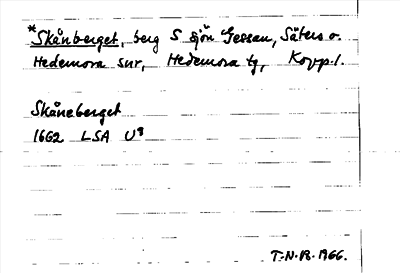 *Skånberget, berg S sjön Gessen, Säters o.
Hedemora snr, Hedemora tg, Kopp.l.
Skåneberget
1662 LSA U8
T.N.R. 1966.